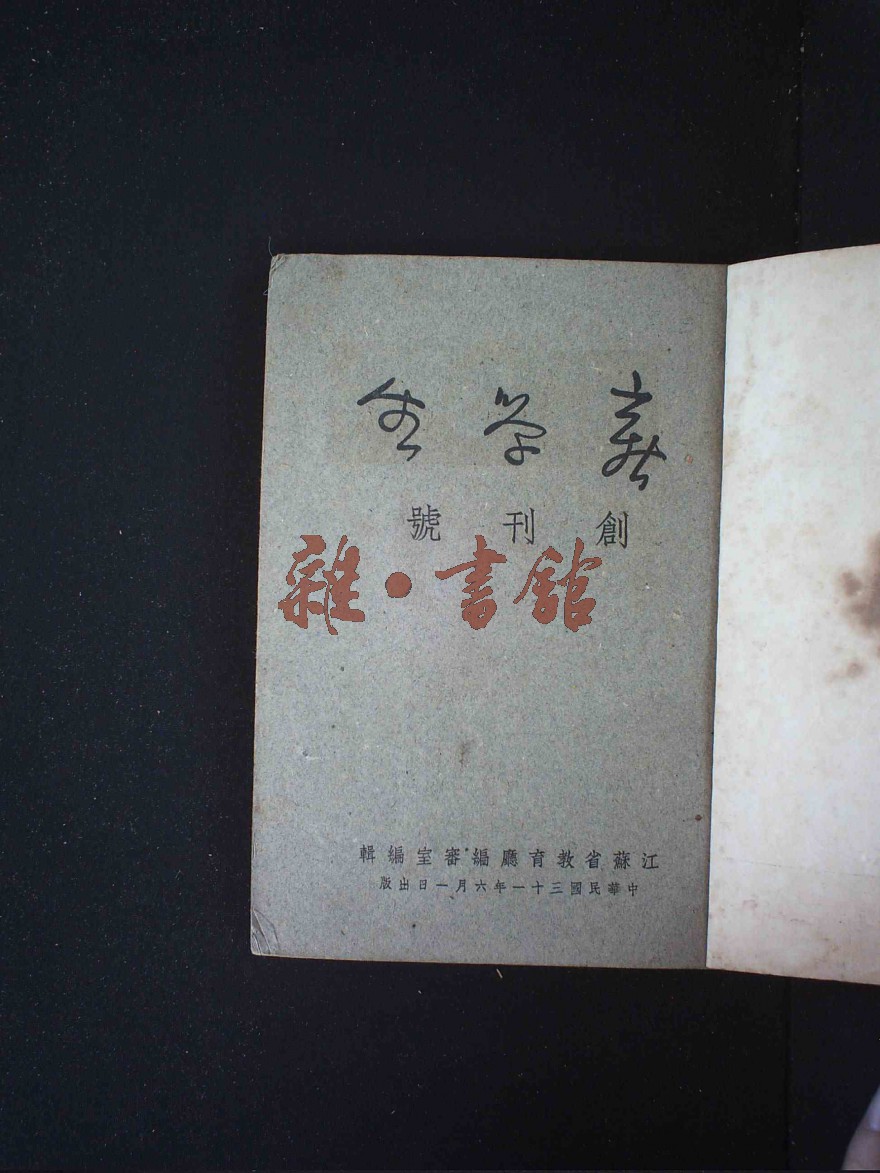 新學生
創刊號
雜·書館
江蘇省教育廳編審室編輯
中華民國三十一年六月一日出版